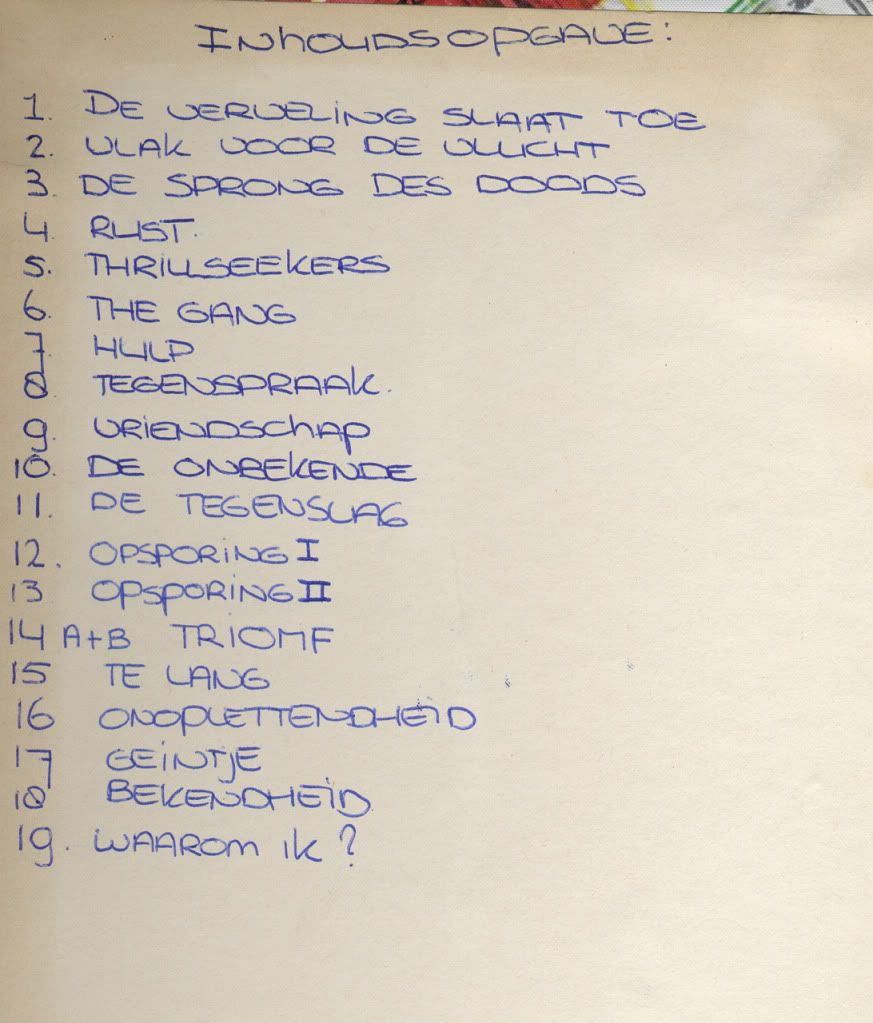 INHOUDSOPGAVE:
1. DE VERVELING SLAAT TOE
2. VLAK VOOR DE VLUCHT
3. DE SPRONG DES DOODS
4. RUST.
5. THRILLSEEKERS
6. THE GANG
7. HULP
8. TEGENSPRAAK.
9. VRIENDSCHAP
10. DE ONBEKENDE
11. DE TEGENSLAG
12. OPSPORING I
13 OPSPORING II
14 A+B TRIOMF
15 TE LANG
16 ONOPLETTENDHEID
17 GEINTJE
18 BEKENDHEID
19. WAAROM IK?